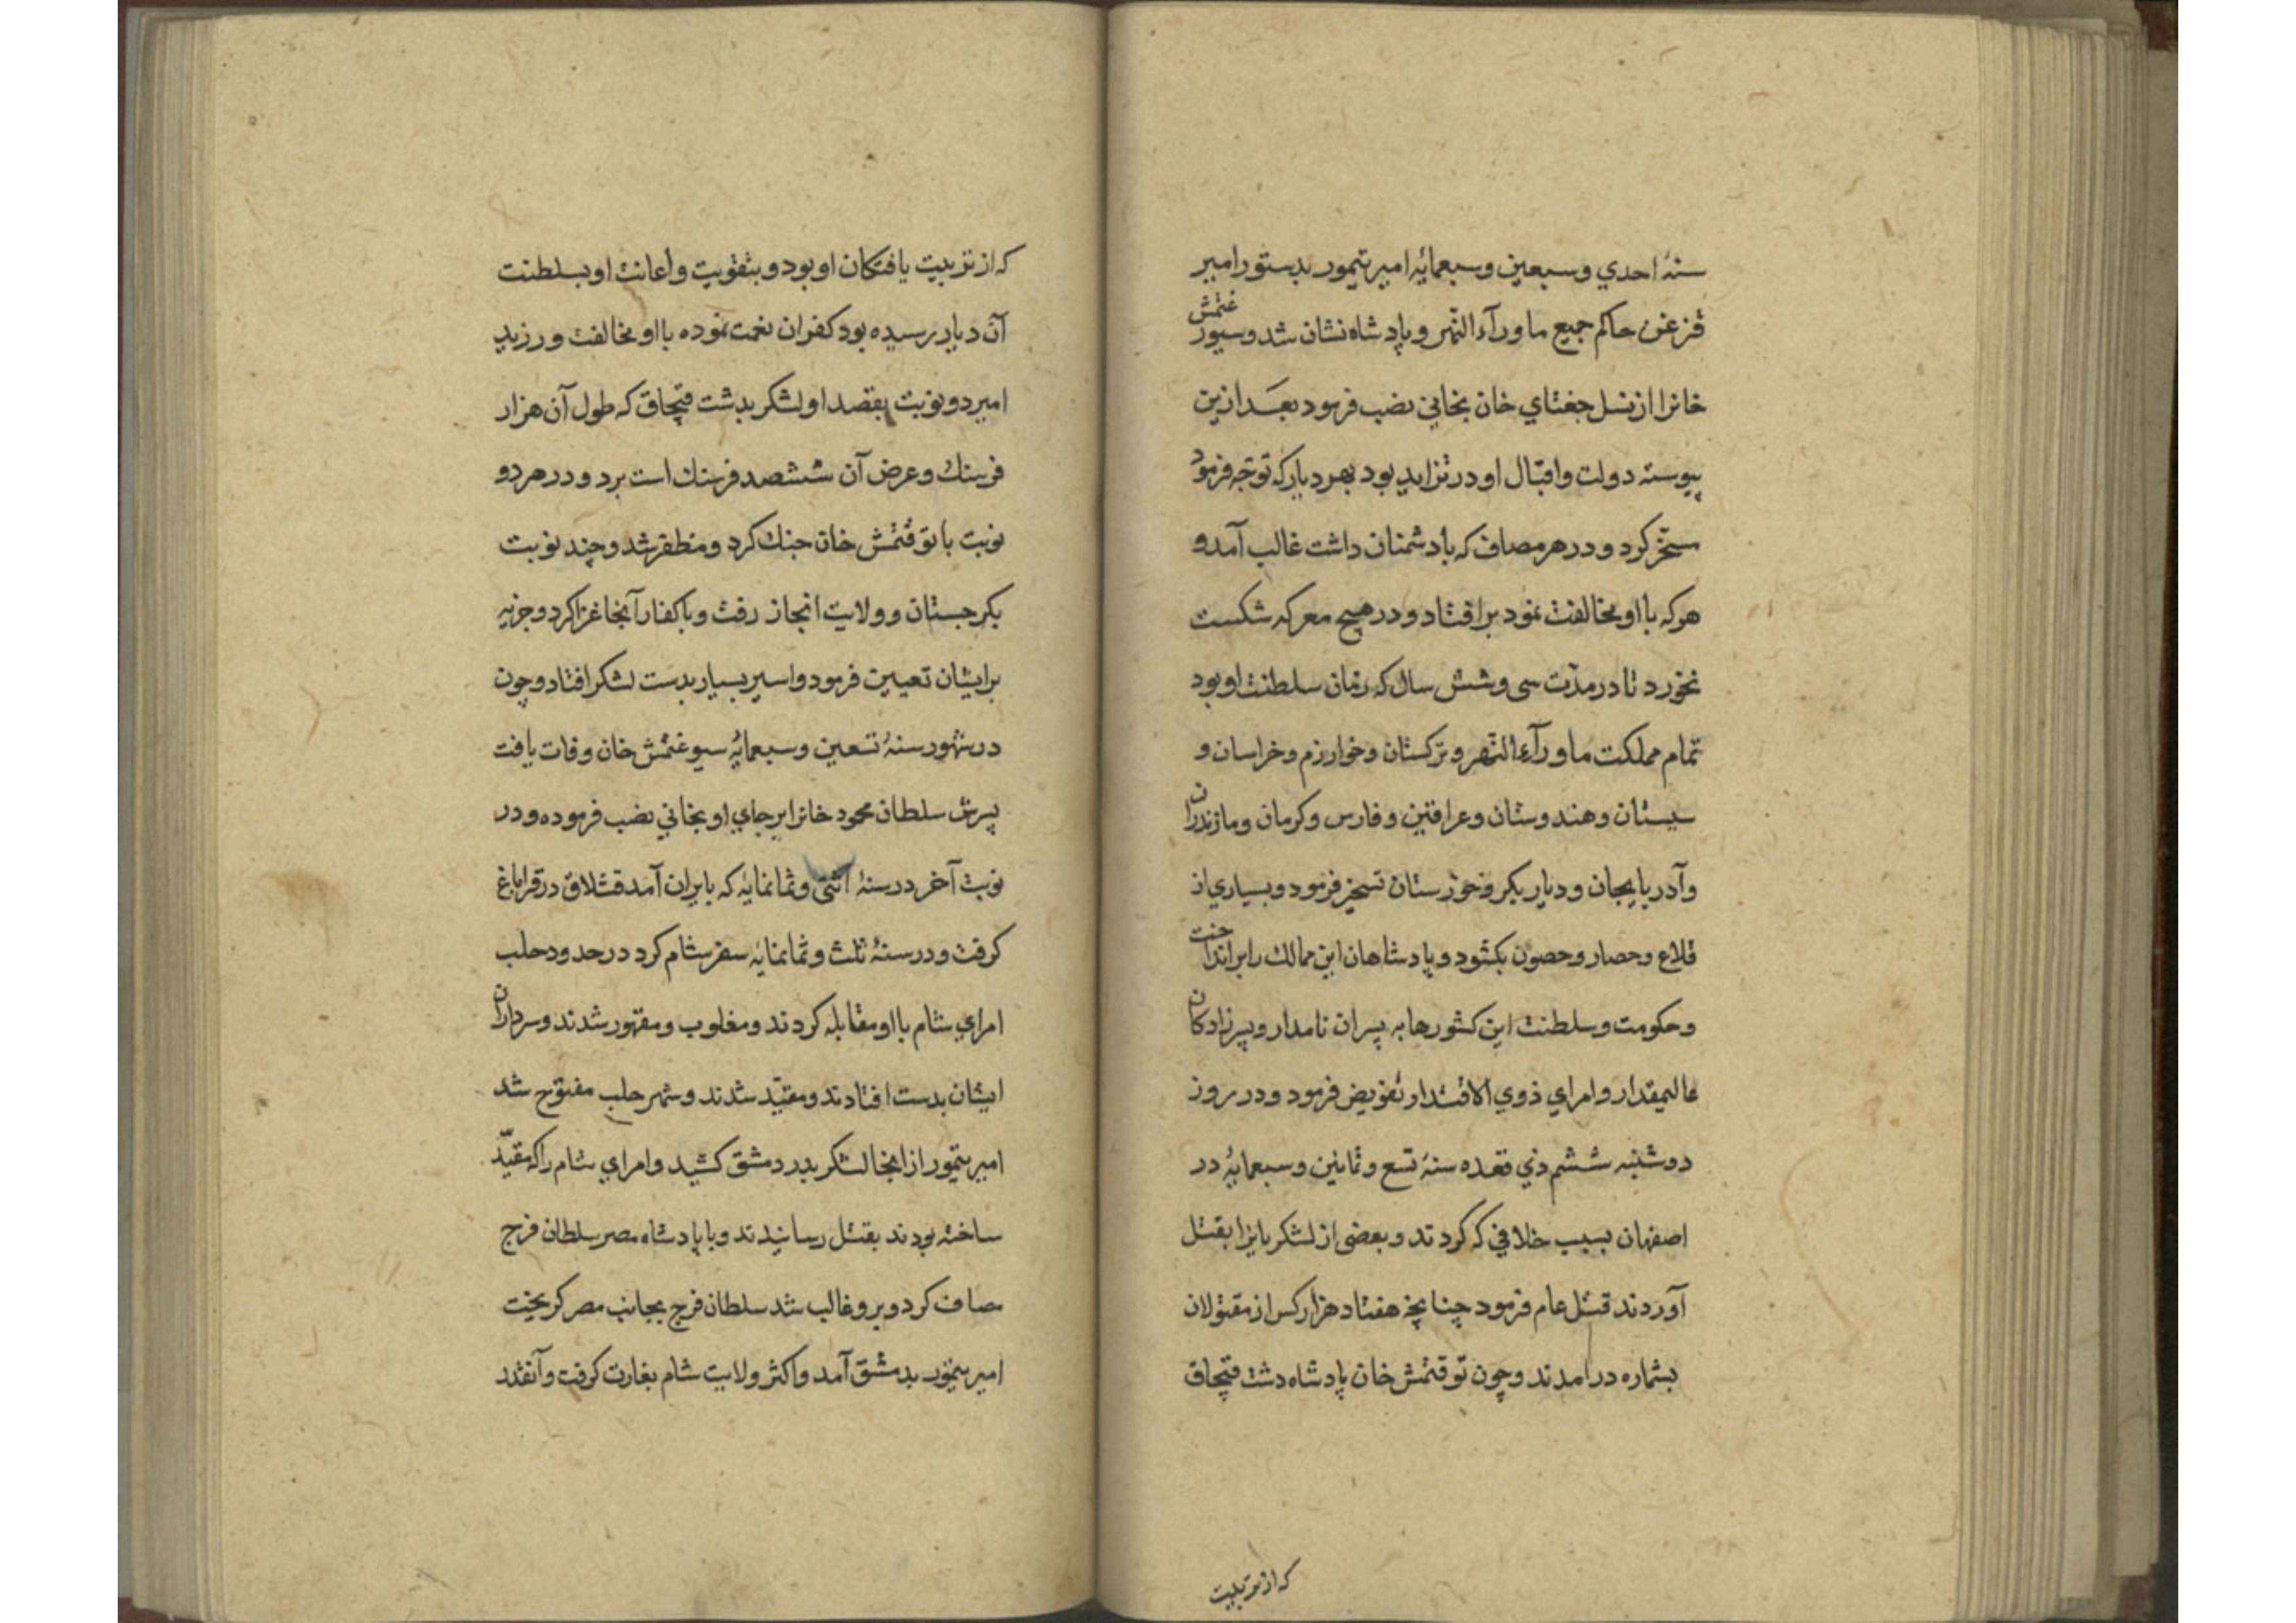 سنهٔ احدي وسبعين وسبعمایهٔ امیر تیمور بدستور امیر
قزغن حاکم جمیع ماورآء النّهر و پادشاه نشان شد و سیورغتمش
خانرا از نسل جغتاي خان بخاني نصب فرمود بعد ازین
پیوسته دولت واقبال او در تزاید بود بهر دیار که توجّه فرمود
مسخّر کرد و در هر مصاف که با دشمنان داشت غالب آمد و
هرکه با او مخالفت نمود بر افتاد و در هیچ معرکه شکست
نخورد تا در مدّت سی و شش سال که زمان سلطنت او بود
تمام مملکت ماورآء النّهر و ترکستان وخوارزم وخراسان و
سیستان وهندوستان وعراقین وفارس وکرمان ومازندران
وآذربایجان ودیار بکر وخوزستان تسخیر فرمود وبسیاري از
قلاع وحصار وحصون بکشود و پادشاهان این ممالك را برانداخت
وحکومت وسلطنت این کشورها به پسران نامدار وپسرزادکان
عالیمقدار وامراي ذوي الاقتدار تفویض فرمود ودر روز
دوشنبه ششم ذي قعده سنهٔ تسع وثمانین وسبعمایهٔ در
اصفهان بسبب خلافي که کردند وبعضی از لشکریانرا بقتل
آوردند قتل عام فرمود چنانچه هفتاد هزار کس از مقتولان
بشماره درامدند وچون توقتمش خان پادشاه دشت قپچاق
که از تربیت
که از تربیت یافتکان او بود و بتقویت وأعانت او بسلطنت
آن دیار رسیده بود کفران نعمت نموده با او مخالفت ورزید
امیر دو نوبت بقصد او لشکر بدشت قپچاق که طول آن هزار
فرسنك وعرض آن ششصد فرسنك است برد ودر هر دو
نوبت با توقتمش خان جنك کرد ومظفر شد وچند نوبت
بکرجستان وولایت ابخاز رفت وبا کفار آنجا غزا کرد وجزیه
برایشان تعیین فرمود واسیر بسیار بدست لشکر افتاد وچون
در شهور سنهٔ تسعین وسبعمایهٔ سیوغتمش خان وفات یافت
پسرش سلطان محمود خانرا بر جاي او بخاني نصب فرموده ودر
نوبت آخر در سنهٔ اثنی وثمانمایه که بایران آمد قشلاق در قراباغ
کرفت ودر سنهٔ ثلث وثمانمایه سفر شام کرد در حدود حلب
امراي شام با او مقابله کردند ومغلوب ومقهور شدند وسرداران
ایشان بدست افتادند ومقیّد شدند وشهر حلب مفتوح شد
امیر تیمور از انجا لشکر بدر دمشق کشید وامراي شام را که مقیّد
ساخته بودند بقتل رسانیدند وبا پادشاه مصر سلطان فرج
مصاف کرد وبرو غالب شد سلطان فرج بجانب مصر کریخت
امیر تیمور بدمشق آمد واکثر ولایت شام بغارت کرفت وآنقدر